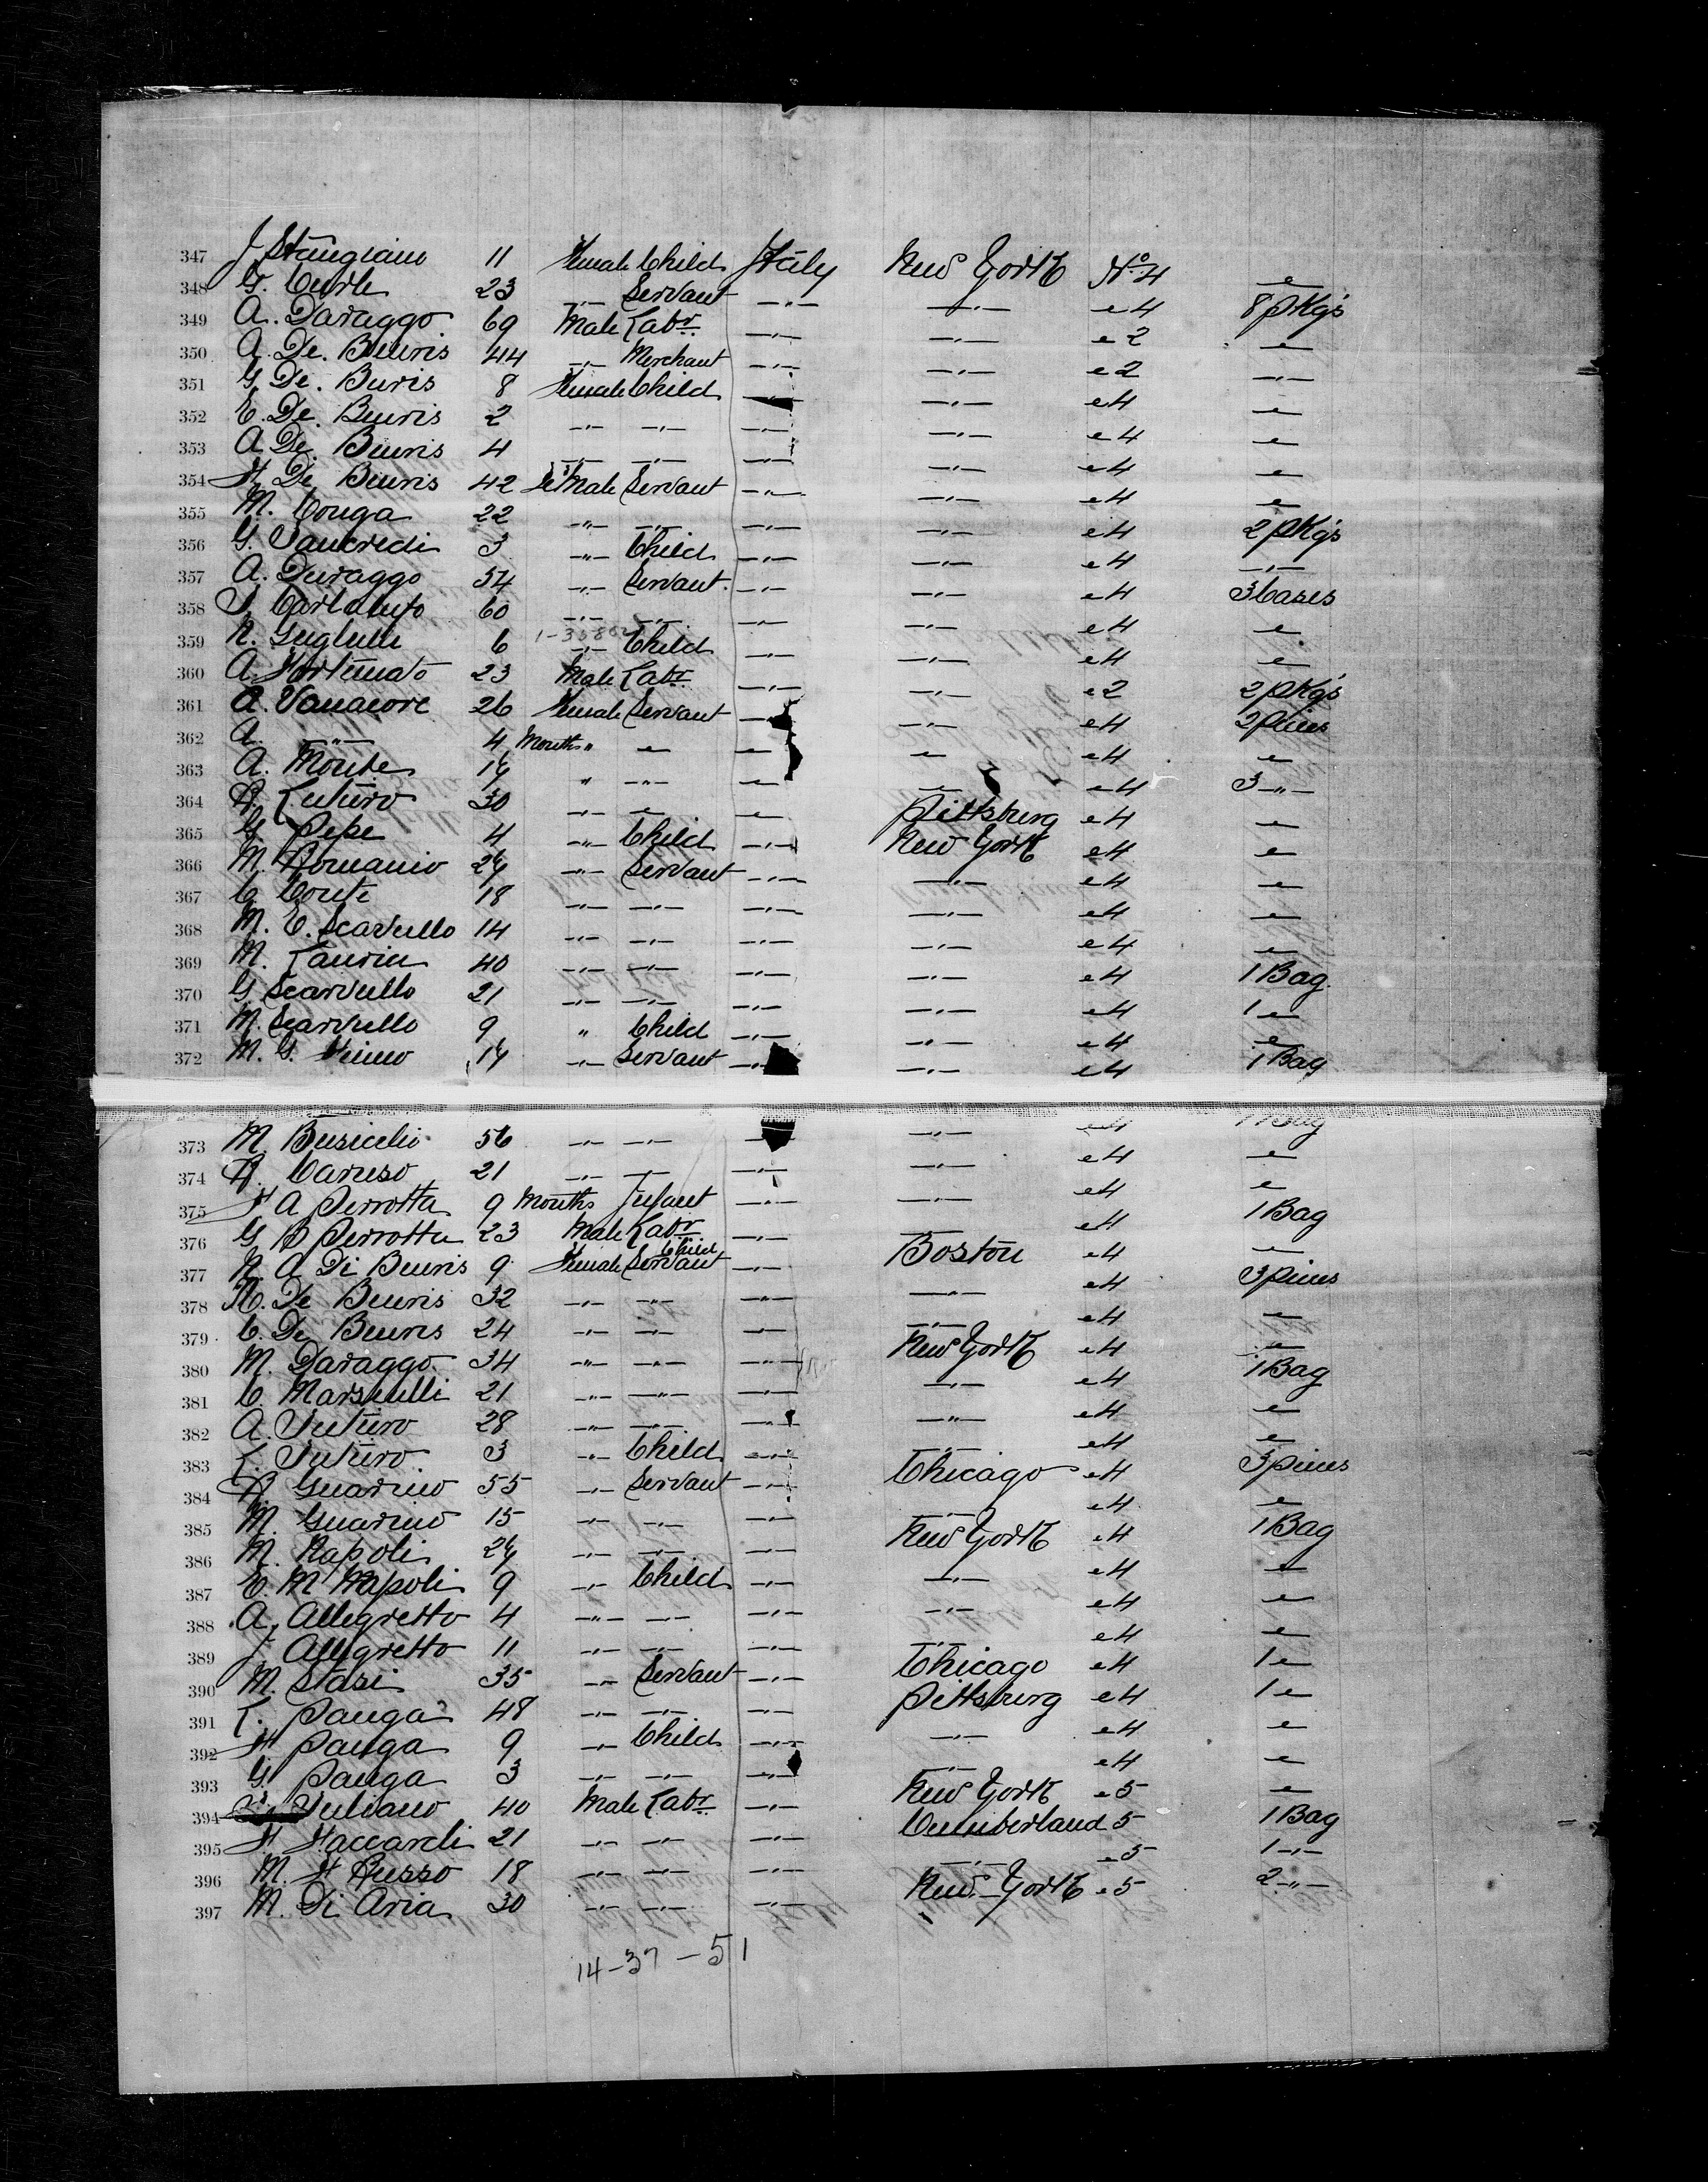 347 J. Stangiano 11 Female Child Italy New York No 4 "
348 G. Curle 23 " Servant " " " 4 8 pKgs
349 A. Daraggo 69 Male Labr " " " 2 "
350 A. De. Beuris 44 " Merchant " " " 2 "
351 G. De. Buris 8 Female Child " " " 4 "
352 E. De. Beuris 2 " " " " " 4 "
353 A. De. Beuris 4 " " " " " 4 "
354 F. De Beuris 42 FeMale Servant " " " 4 "
355 M. Conga 22 " " " " " 4 2 pKgs
356 G. Tancredi 3 " Child " " " 4 "
357 A. Duraggo 54 " Servant " " " 4 3 Cases
358 60 " " " " " 4 "
359 6 " Child " " " 4 "
360 A. Fortunato 23 Male Labr " " " 2 2 pKgs
361 A. Vanacore 26 Female Servant " " " 4 2 pieces
362 A. " 4 Months " " " " " 4 "
363 A. Monte 17 " " " " " 4 3 "
364 30 " " " Pittsburg " 4 "
365 G. Pepe 4 " Child " New York " 4 "
366 M. Romanio 27 " Servant " " " 4 "
367 C. Conte 18 " " " " " 4 "
368 M. C. Scarvello 14 " " " " " 4 "
369 M. Lauria 40 " " " " " 4 1 Bag
370 G. Scarvello 21 " " " " " 4 1 "
371 M. Scarvello 9 " Child " " " 4 "
372 M. G. 17 " Servant " " " 4 1 Bag
373 M. Busicelio 56 " " " " " 4 1 Bag
374 R. Caruso 21 " " " " " 4 "
375 F A Perrotta 9 Months Infant " " " 4 "
376 G B Perrotta 23 Male Labr " " " 4 1 Bag
377 R. A Di Beuris 9 Female Servant Child " Boston " 4 "
378 R. De Beuris 32 " " " " " 4 3 pieces
379 C. De Beuris 24 " " " " " 4 "
380 M. Daraggo 34 " " " New York " 4 "
381 C. Marselli 21 " " " " " 4 1 Bag
382 A. Tuturo 28 " " " " " 4 "
383 L. Tuturo 3 " Child " " " 4 "
384 R. Guarino 55 " Servant " Chicago " 4 3 pieces
385 M. Guarino 15 " " " " " 4 "
386 M. Napoli 27 " " " New York " 4 1 Bag
387 C. M Napoli 9 " Child " " " 4 "
388 A. Allegretto 4 " " " " " 4 "
389 J Allegretto 11 " " " " " 4 "
390 M. Stasi 35 " Servant " Chicago " 4 1 "
391 L. Panga 48 " " " Pittsburg " 4 1 "
392 F Panga 9 " Child " " " 4 "
393 G. Panga 3 " " " " " 4 "
394 Juliano 40 Male Labr " New York " 5 "
395 F Faccardi 21 " " " Cumberland 5 1 Bag
396 M. F Russo 18 " " " " " 5 1 "
397 M. Di Aria 30 " " " New York " 5 2 "
14-37-51